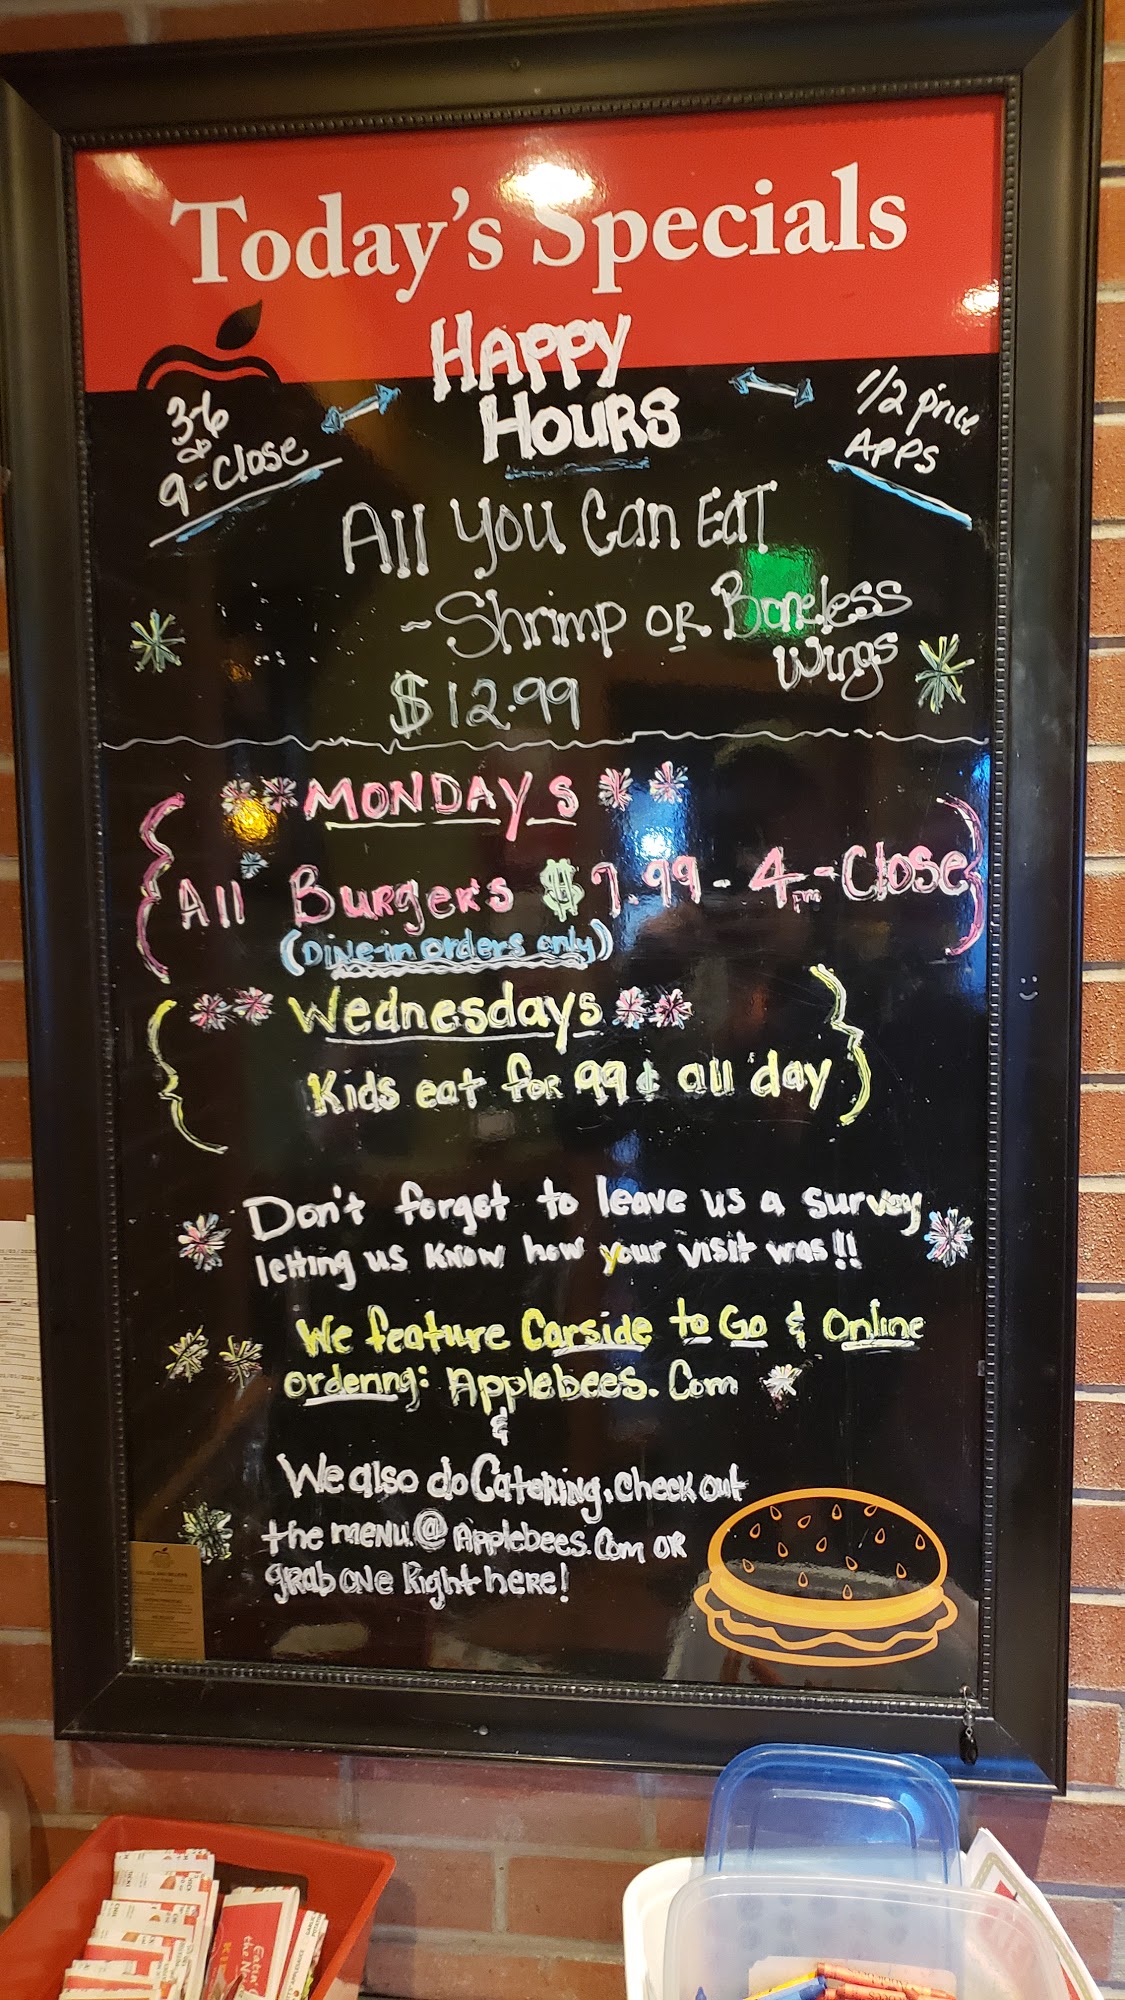 Today's Specials
HAPPY
HOURS
3-6
9-Close
1/2 price
APPS
All You Can EaT
~Shrimp OR Boneless
Wings
$12.99
MONDAYS
All Burgers $7.99 - 4pm-Close
(Dine-in orders only)
Wednesdays
Kids eat for 99¢ all day
Don't forget to leave us a survey
letting us know how your visit was!!
We feature Carside to Go & Online
ordering: Applebees.Com
&
We also do Catering, check out
the menu @ Applebees.Com OR
grab one Right here!